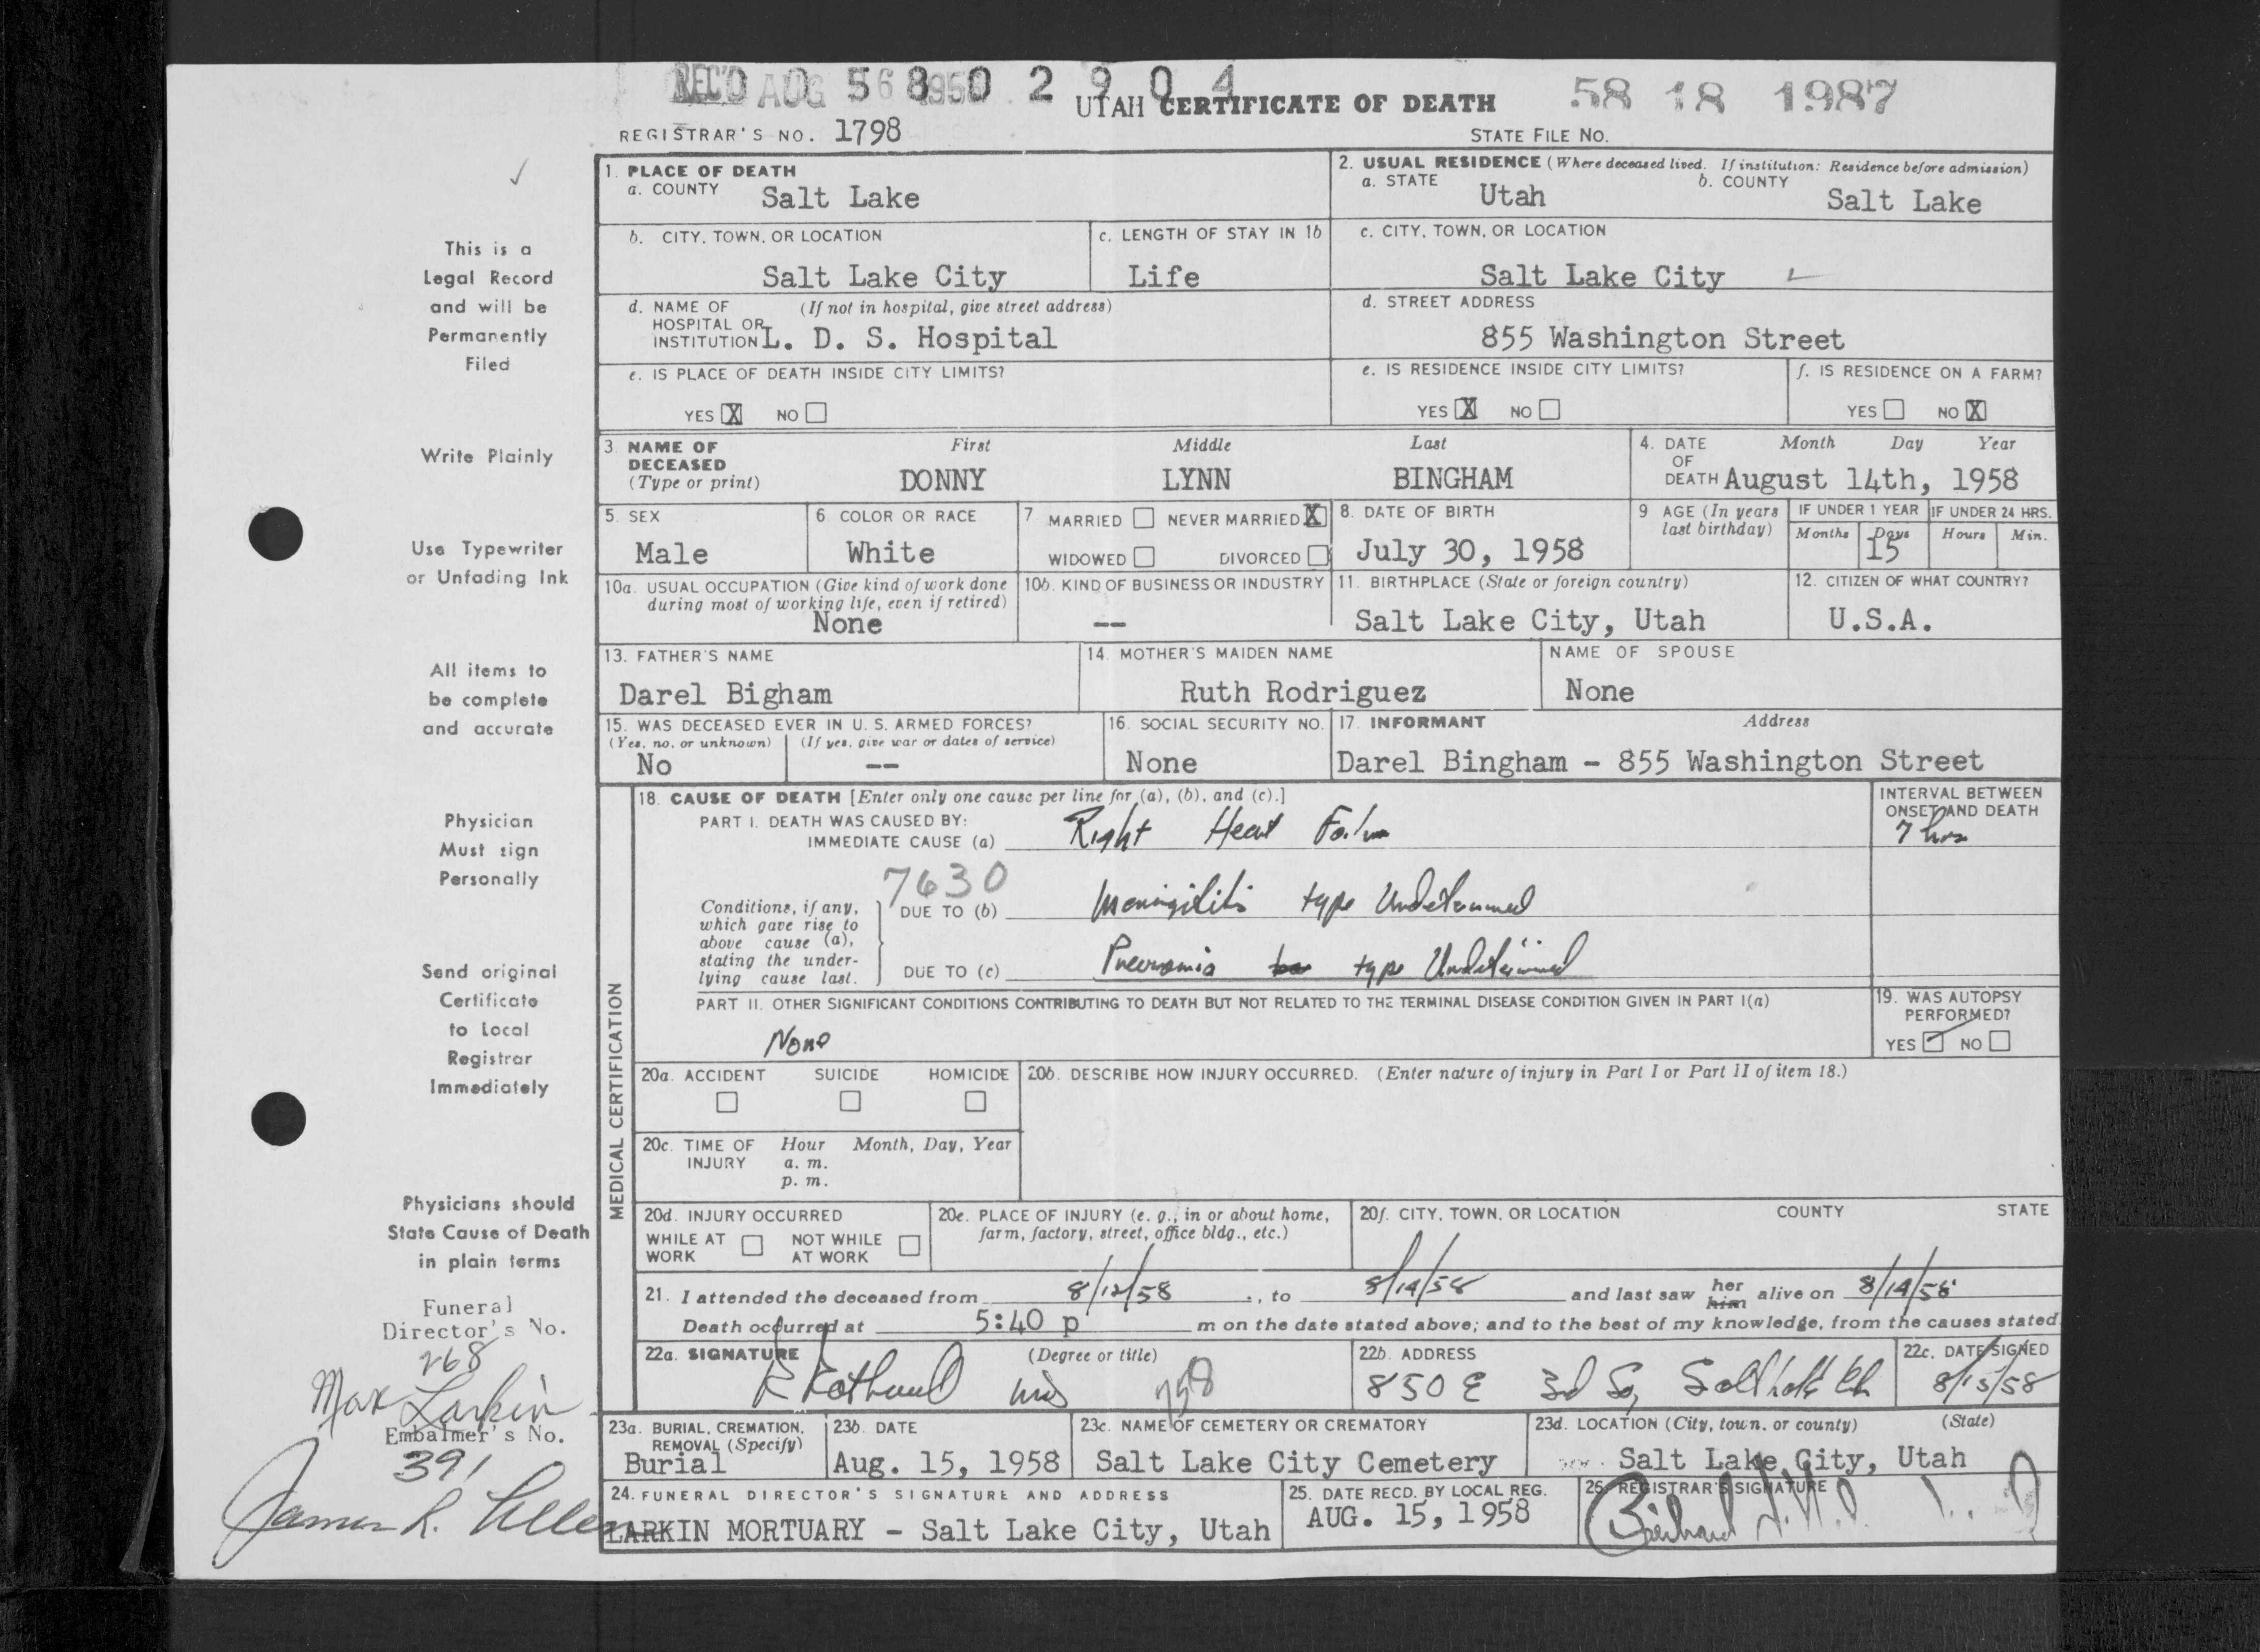 REC'D AUG
5 8 0 2 9 0 4
58 18 1987
UTAH CERTIFICATE OF DEATH
REGISTRAR'S NO. 1798
STATE FILE NO.
This is a
Legal Record
and will be
Permanently
Filed
Write Plainly
Use Typewriter
or Unfading Ink
All items to
be complete
and accurate
Physician
Must sign
Personally
Send original
Certificate
to Local
Registrar
Immediately
Physicians should
State Cause of Death
in plain terms
Funeral
Director's No.
268
Max Larkin
Embalmer's No.
391
James R.
1. PLACE OF DEATH
a. COUNTY Salt Lake
2. USUAL RESIDENCE (Where deceased lived. If institution: Residence before admission)
a. STATE Utah b. COUNTY Salt Lake
b. CITY, TOWN, OR LOCATION Salt Lake City
c. LENGTH OF STAY IN 1b Life
c. CITY, TOWN, OR LOCATION Salt Lake City
d. NAME OF (If not in hospital, give street address)
HOSPITAL OR
INSTITUTION L. D. S. Hospital
d. STREET ADDRESS
855 Washington Street
e. IS PLACE OF DEATH INSIDE CITY LIMITS?
YES X NO
e. IS RESIDENCE INSIDE CITY LIMITS?
YES X NO
f. IS RESIDENCE ON A FARM?
YES NO X
3. NAME OF DECEASED (Type or print)
First Middle Last
DONNY LYNN BINGHAM
4. DATE OF DEATH Month Day Year
August 14th, 1958
5. SEX
Male
6. COLOR OR RACE
White
7 MARRIED NEVER MARRIED X
WIDOWED DIVORCED
8. DATE OF BIRTH
July 30, 1958
9 AGE (In years last birthday)
IF UNDER 1 YEAR IF UNDER 24 HRS.
Months Days Hours Min.
15
10a. USUAL OCCUPATION (Give kind of work done
during most of working life, even if retired)
None
10b. KIND OF BUSINESS OR INDUSTRY
--
11. BIRTHPLACE (State or foreign country)
Salt Lake City, Utah
12. CITIZEN OF WHAT COUNTRY?
U.S.A.
13. FATHER'S NAME
Darel Bigham
14. MOTHER'S MAIDEN NAME
Ruth Rodriguez
NAME OF SPOUSE
None
15. WAS DECEASED EVER IN U. S. ARMED FORCES?
(Yes, no, or unknown) (If yes, give war or dates of service)
No --
16. SOCIAL SECURITY NO.
None
17. INFORMANT Address
Darel Bingham - 855 Washington Street
MEDICAL CERTIFICATION
18. CAUSE OF DEATH [Enter only one cause per line for (a), (b), and (c).]
INTERVAL BETWEEN
ONSET AND DEATH
PART I. DEATH WAS CAUSED BY:
IMMEDIATE CAUSE (a) Right Heart Failure
7 hrs
7630
Conditions, if any,
which gave rise to
above cause (a),
stating the under-
lying cause last.
DUE TO (b) Meningitis type Undetermined
DUE TO (c) Pneumonia type Undetermined
PART II. OTHER SIGNIFICANT CONDITIONS CONTRIBUTING TO DEATH BUT NOT RELATED TO THE TERMINAL DISEASE CONDITION GIVEN IN PART I(a)
None
19. WAS AUTOPSY
PERFORMED?
YES NO
20a. ACCIDENT SUICIDE HOMICIDE
20b. DESCRIBE HOW INJURY OCCURRED. (Enter nature of injury in Part I or Part II of item 18.)
20c. TIME OF INJURY Hour Month, Day, Year
a. m.
p. m.
20d. INJURY OCCURRED
WHILE AT WORK NOT WHILE AT WORK
20e. PLACE OF INJURY (e. g., in or about home,
farm, factory, street, office bldg., etc.)
20f. CITY, TOWN, OR LOCATION COUNTY STATE
21. I attended the deceased from 8/12/58, to 8/14/58 and last saw her him alive on 8/14/58
Death occurred at 5:40 p m on the date stated above; and to the best of my knowledge, from the causes stated.
22a. SIGNATURE (Degree or title)
22b. ADDRESS
850 E 3d So,
22c. DATE SIGNED
8/15/58
23a. BURIAL, CREMATION,
REMOVAL (Specify)
Burial
23b. DATE
Aug. 15, 1958
23c. NAME OF CEMETERY OR CREMATORY
Salt Lake City Cemetery
23d. LOCATION (City, town, or county) (State)
Salt Lake City, Utah
24. FUNERAL DIRECTOR'S SIGNATURE AND ADDRESS
LARKIN MORTUARY - Salt Lake City, Utah
25. DATE RECD. BY LOCAL REG.
AUG. 15, 1958
26. REGISTRAR'S SIGNATURE